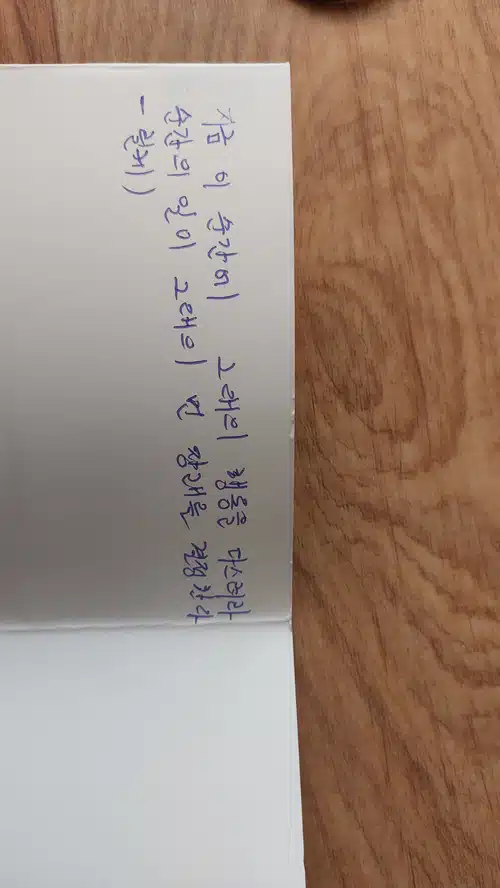 지금 이 순간에 그대의 행동을 다스려라
순간의 일이 그대의 먼 장래를 결정한다
- 릴케)